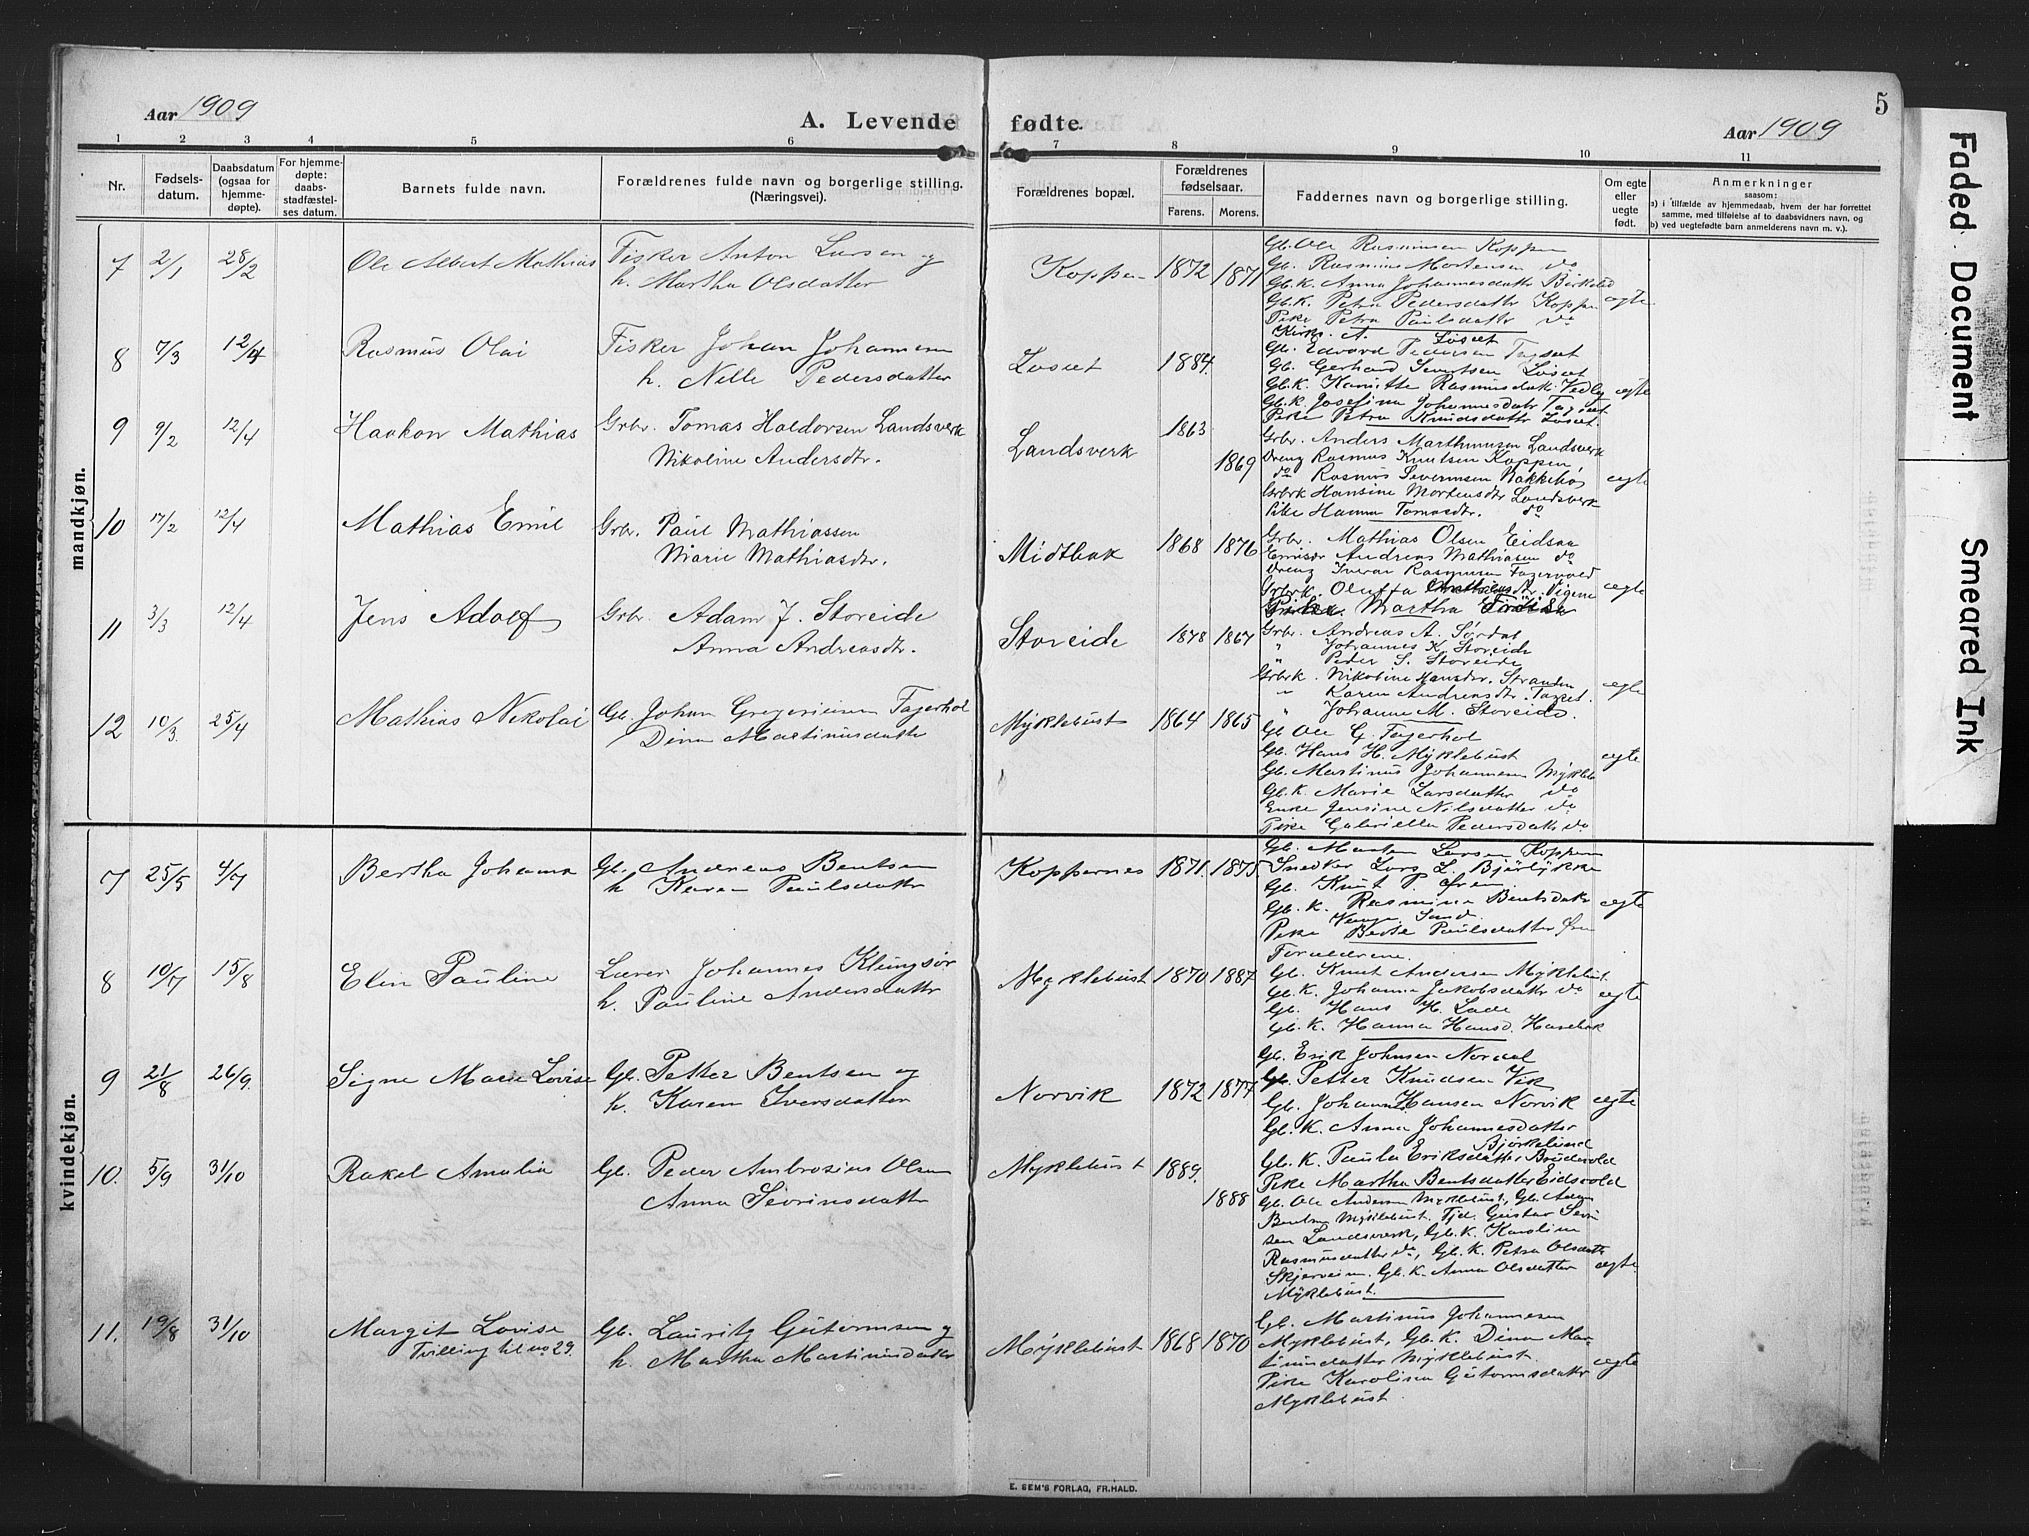 5
Aar 1909
A. Levende fødte.
Aar 1909
1 2 3 4 5 6 7 8 9 10 11
Nr.
Fødsels-
datum.
Daabsdatum
(ogsaa for
hjemme-
døpte).
For hjemme-
døpte:
daabs-
stadfæstel-
ses datum.
Barnets fulde navn.
Forældrenes fulde navn og borgerlige stilling.
(Næringsvei).
Forældrenes bopæl.
Forældrenes
fødselsaar.
Farens. Morens.
Faddernes navn og borgerlige stilling.
Om egte
eller
uegte
født.
Anmerkninger
saasom:
a) i tilfælde av hjemmedaab, hvem der har forrettet
samme, med tilføielse af to daabsvidners navn, og
b) ved uegtefødte barn anmelderens navn m. v.).
mandkjøn.
7 2/1 28/2 Ole Albert Mathias
Fisker Anton Larsen og
h. Martha Olsdatter
Koppen 1872 1871
Gb. Ole Rasmussen Koppen
Gb. Rasmine Mortensen do
Gb. K. Anna Johannesdatter Birkelid
Gb. K. Petra Pedersdatter Koppen egte
Pike Petra Paulsdatter do
8 7/3 12/4 Rasmus Olai
Fisker Johan Johannesen
h. Nelle Pedersdatter
Løset 1884.
Kirks. A. Løset
Gb. Edvard Pedersen Tagset
Gb. Gerhard Severtsen Løset
Gb. K. Rasmusdatr. Vedlig egte
Gb. K. Josefina Johannesdatr Tagset
Pike Petra Knudsdattr Løset.
9 9/2 12/4 Haakon Mathias
Grbr. Tomas Haldorsen Landsverk
Nikoline Andersdtr.
Landsverk 1863 1869
Grbr. Anders Marthinusen Landsverk
Dreng Rasmus Knutsen Koppen,
do Rasmus Severinsen Bakkebø egte
Grbrk Hansine Mortensdtr Landsverk
Pike Hanna Tomasdtr. do
10 17/2 12/4 Mathias Emil
Grbr. Paul Mathiassen
Marie Mathiasdtr.
Midtbak 1868 1876
Grbr. Mathias Olsen Eidsaa
Andreas Mathiasen do
Dreng Iveran Rasmussen Fagervold
Grbrk. Oluffa egte
Martha
11 3/3 12/4 Jens Adolf
Grbr. Adam J. Storeide
Anna Andreasdtr.
Storeide 1878 1867
Grbr. Andreas A. Sørdal
" Johannes K. Storeide
" Peder S. Storeide
Grbrk. Nikoline Hansdtr. Stranden egte
" Karen Andreasdtr. Tagset.
" Johanne M. Storeide.
12 10/3. 25/4 Mathias Nikolai
Gb. Johan Gregeriusen Fagerhol
Dina Martinusdatter
Myklebust 1864 1865
Gb. Ole G. Fagerhol
Gb. Hans H. Myklebust egte
Gb. Martinus Johannesen Mykleb
Gb. K. Marie Larsdatter do
Enke Jensine Nilsdatter do
Pike Gabriella Pedersdatr do
kvindekjøn.
7 25/5 4/7 Bertha Johanna
Gb. Andreas Bentsen
h Karen Paulsdattr
Koppernes 1871. 1875.
Gb. Morten Larsen Koppen
Snedker Lars L. Bjørlykke
Gb. Knut P. Øren
Gb. K. Rasmina Bentsdatr egte
Sand.
Pike Berte Paulsdatter Øren
8 10/7 15/8 Elin Pauline
Lærer Johannes Klungsør
h. Pauline Andersdattr
Myklebust 1870 1887
Forældrene.
Gb. Knut Andersen Myklebust
Gb. K. Johanna Jakobsdatr do egte
Gb. Hans H. Lade
Gb. K. Hanna Hansd. Hasebak
9 21/8 26/9. Signe Marie Lovise
Gb. Petter Bentsen og
h. Karen Iversdatter
Norvik 1872 1877
Gb. Erik Johnsen Nordal
Gb. Petter Knudsen Vik
Gb. Johannes Hansen Norvik egte
Gb. K. Anna Johannesdatter
Bjørkelund
Gb. K. Paula Eriksdatter Brudevold
Pike Martha Bentsdatter Eidsvold
10. 5/9 31/10 Rakel Amalia
Gb. Peder Ambrosius Olsen
Anna Sevrinsdatter
Myklebust 1889. 1888
Gb. Ole Andersen Myklebust, Gb. Adam
Bentsen Myklebust. Tjd. Gustav Sevrin
sen Landsverk, Gb. K. Karoline
Rasmusdatter do, Gb. K. Petra Olsdattr
Skjerveim. Gb. K. Anna Olsdatter egte.
Myklebust.
11. 19/8 31/10 Margit Lovise
Tvilling til no 29.
Gb. Lauritz Guttormsen og
h. Martha Martinusdattr
Myklebust 1868 1870
Gb. Martinus Johannesen
Myklebust, Gb. K. Dina Mar-
tinusdatter Myklebust.
Pike Karolina Guttormsdatter egte
Myklebust.
E. SEM'S FORLAG, FR.HALD.
Faded Document
Smeared Ink